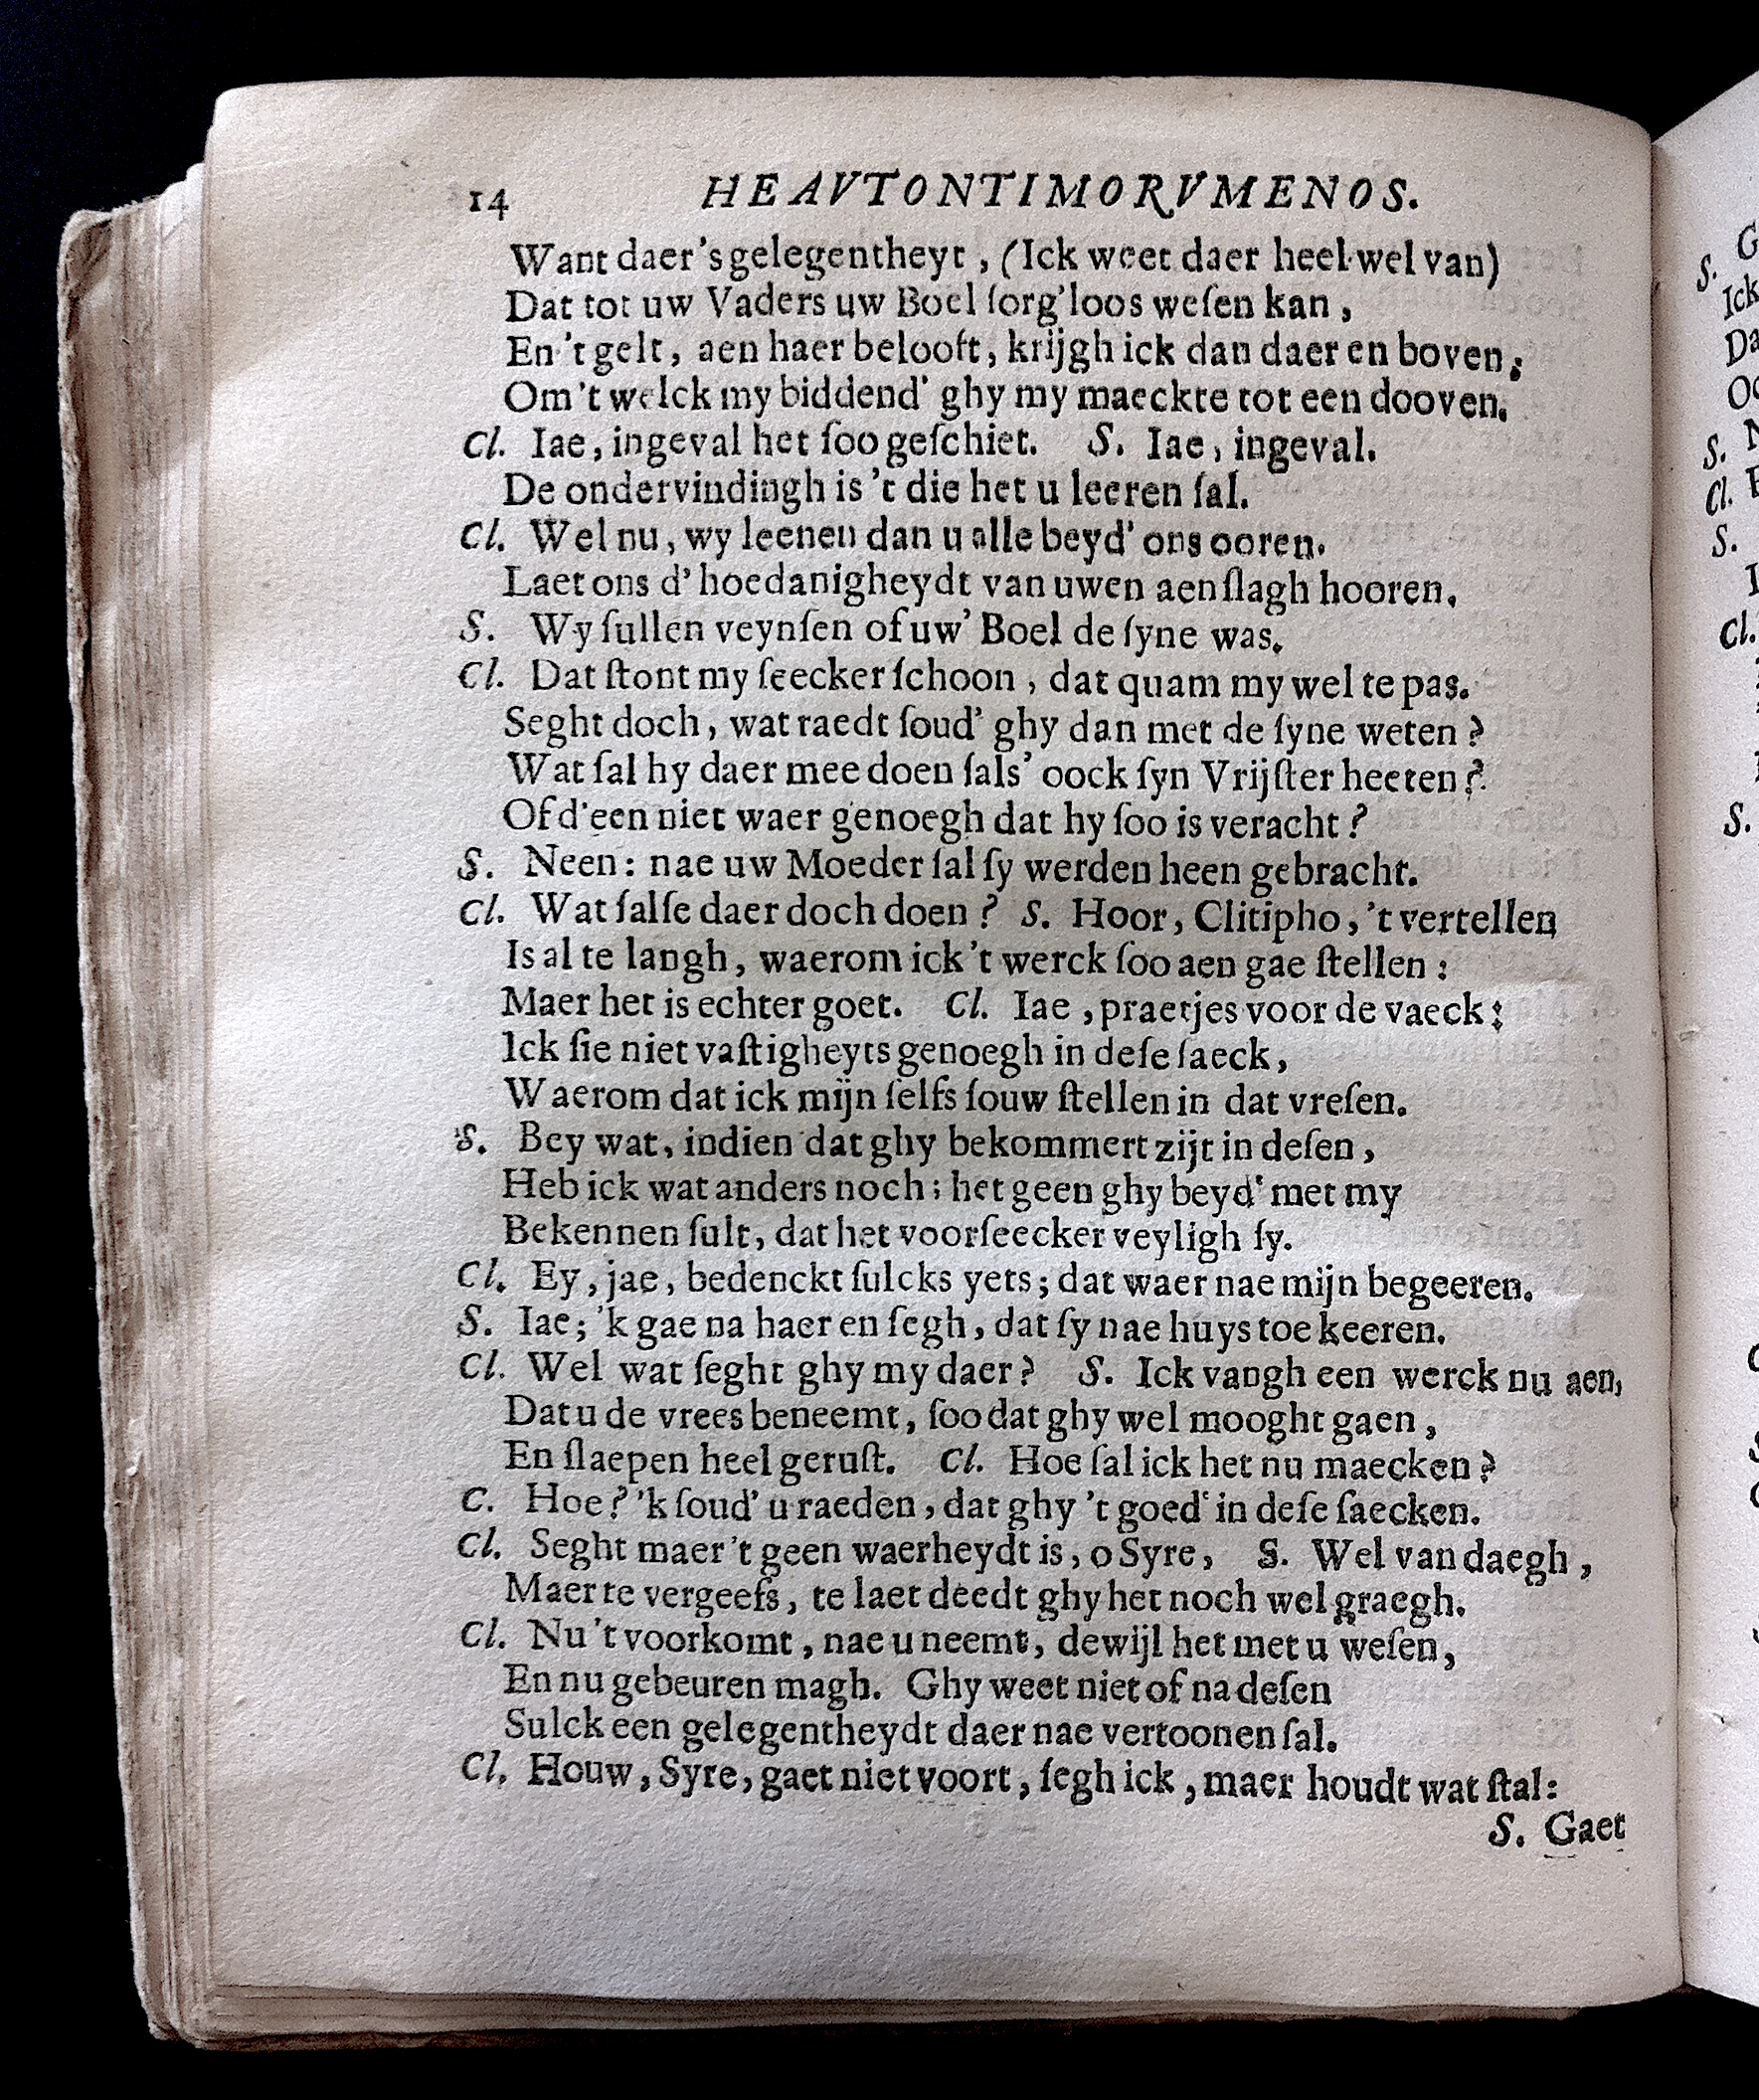 14 HEAVTONTIMORVMENOS.
Want daer's gelegentheyt, (Ick weet daer heel wel van)
Dat tot uw Vaders uw Boel ſorg'loos weſen kan,
En 't gelt, aen haer belooft, krijgh ick dan daer en boven;
Om 't welck my biddend' ghy my maeckte tot een dooven.
Cl. Iae, ingeval het ſoo geſchiet. S. Iae, ingeval.
De ondervindingh is 't die het u leeren ſal.
Cl. Wel nu, wy leenen dan u alle beyd' ons ooren.
Laet ons d' hoedanigheydt van uwen aenſlagh hooren.
S. Wy ſullen veynſen of uw' Boel de ſyne was.
Cl. Dat ſtont my ſeecker ſchoon, dat quam my wel te pas.
Seght doch, wat raedt ſoud' ghy dan met de ſyne weten?
Wat ſal hy daer mee doen ſals' oock ſyn Vrijſter heeten?
Of d'een niet waer genoegh dat hy ſoo is veracht?
S. Neen: nae uw Moeder ſal ſy werden heen gebracht.
Cl. Wat ſalſe daer doch doen? S. Hoor, Clitipho, 't vertellen
Is al te langh, waerom ick 't werck ſoo aen gae ſtellen:
Maer het is echter goet. Cl. Iae, praetjes voor de vaeck:
Ick ſie niet vaſtigheyts genoegh in deſe ſaeck,
Waerom dat ick mijn ſelfs ſouw ſtellen in dat vreſen.
S. Bey wat, indien dat ghy bekommert zijt in deſen,
Heb ick wat anders noch; het geen ghy beyd' met my
Bekennen ſult, dat het voorſeecker veyligh ſy.
Cl. Ey, jae, bedenckt ſulcks yets; dat waer nae mijn begeeren.
S. Iae; 'k gae na haer en ſegh, dat ſy nae huys toe keeren.
Cl. Wel wat ſeght ghy my daer? S. Ick vangh een werck nu aen,
Dat u de vrees beneemt, ſoo dat ghy wel mooght gaen,
En ſlaepen heel geruſt. Cl. Hoe ſal ick het nu maecken?
C. Hoe? 'k ſoud' u raeden, dat ghy 't goed' in deſe ſaecken.
Cl. Seght maer 't geen waerheydt is, o Syre, S. Wel van daegh,
Maer te vergeefs, te laet deedt ghy het noch wel graegh.
Cl. Nu 't voorkomt, nae u neemt, dewijl het met u weſen,
En nu gebeuren magh. Ghy weet niet of na deſen
Sulck een gelegentheydt daer nae vertoonen ſal.
Cl. Houw, Syre, gaet niet voort, ſegh ick, maer houdt wat ſtal:
S. Gaet